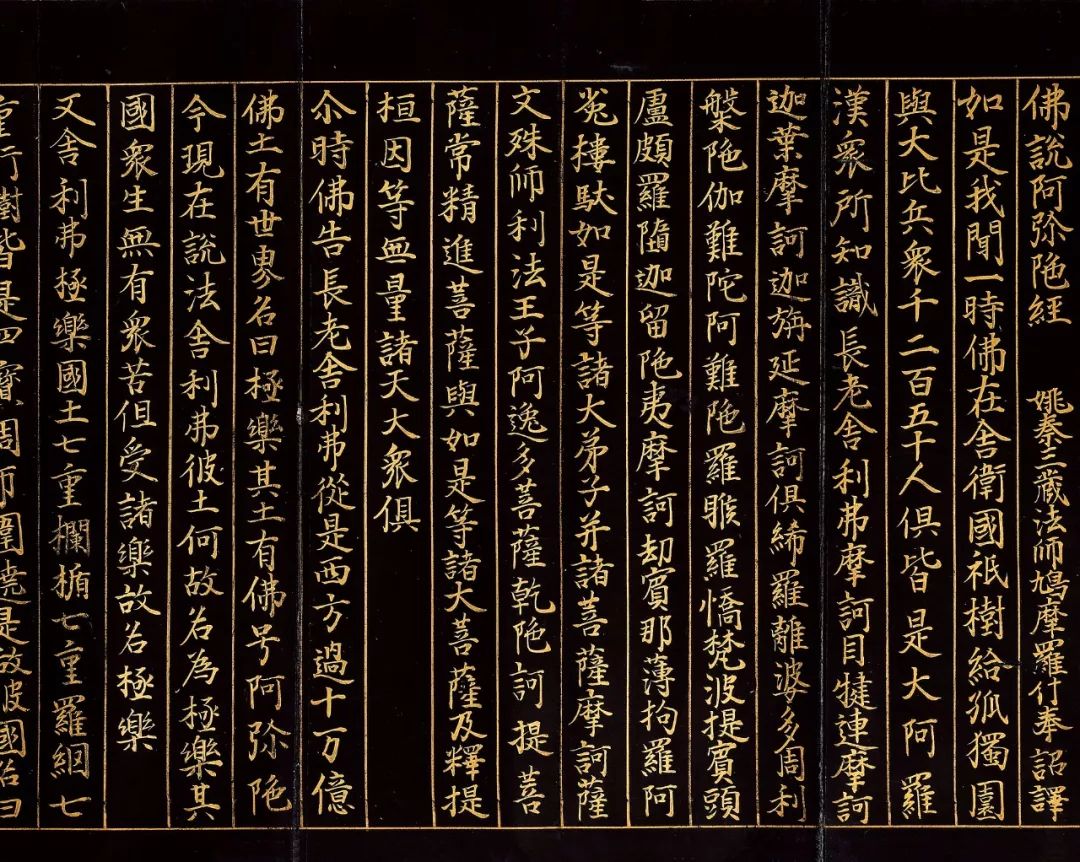 佛說阿弥陁經 姚秦三藏法師鳩摩羅什奉詔譯
如是我聞一時佛在舍衛國祇樹給孤獨園
與大比丘衆千二百五十人俱皆是大阿羅
漢衆所知識長老舍利弗摩訶目犍連摩訶
迦葉摩訶迦旃延摩訶俱絺羅離婆多周利
槃陁伽難陀阿難陁羅睺羅憍梵波提賓頭
盧頗羅隨迦留陁夷摩訶劫賓那薄拘羅阿
㝹樓馱如是等諸大弟子并諸菩薩摩訶薩
文殊師利法王子阿逸多菩薩乾陁訶提菩
薩常精進菩薩與如是等諸大菩薩及釋提
桓因等無量諸天大衆俱
尒時佛告長老舍利弗從是西方過十万億
佛土有世界名曰極樂其土有佛号阿弥陁
今現在說法舍利弗彼土何故名為極樂其
國衆生無有衆苦但受諸樂故名極樂
又舍利弗極樂國土七重欄楯七重羅網七
重行樹皆是四寶周帀圍繞是故彼國名曰